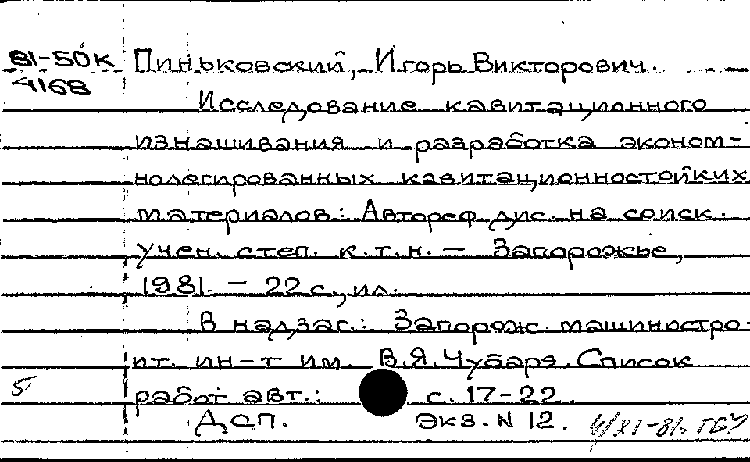 81-50К Пиньковский, Игорь Викторович.
4168
Исследование кавитационного
изнашивания и разработка эконом-
нолегированных кавитационностойких
материалов: Автореф. дис. на соиск.
учен. степ. к.т.н. - Запорожье,
1981. - 22 с., ил.
В надзаг.: Запорож. машиностро-
ит. ин-т им. В.Я. Чубаря. Список
5 работ авт.: с. 17-22.
ДСП. Экз. N 12.